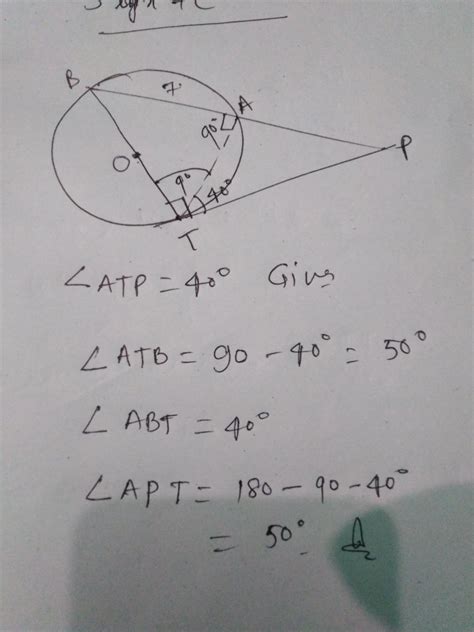 B
7.
A
90°
O
90
40°
P
T
∠ATP = 40°
∠ATB = 90 - 40° = 50°
∠ABT = 40°
∠APT = 180 - 90 - 40°
= 50°